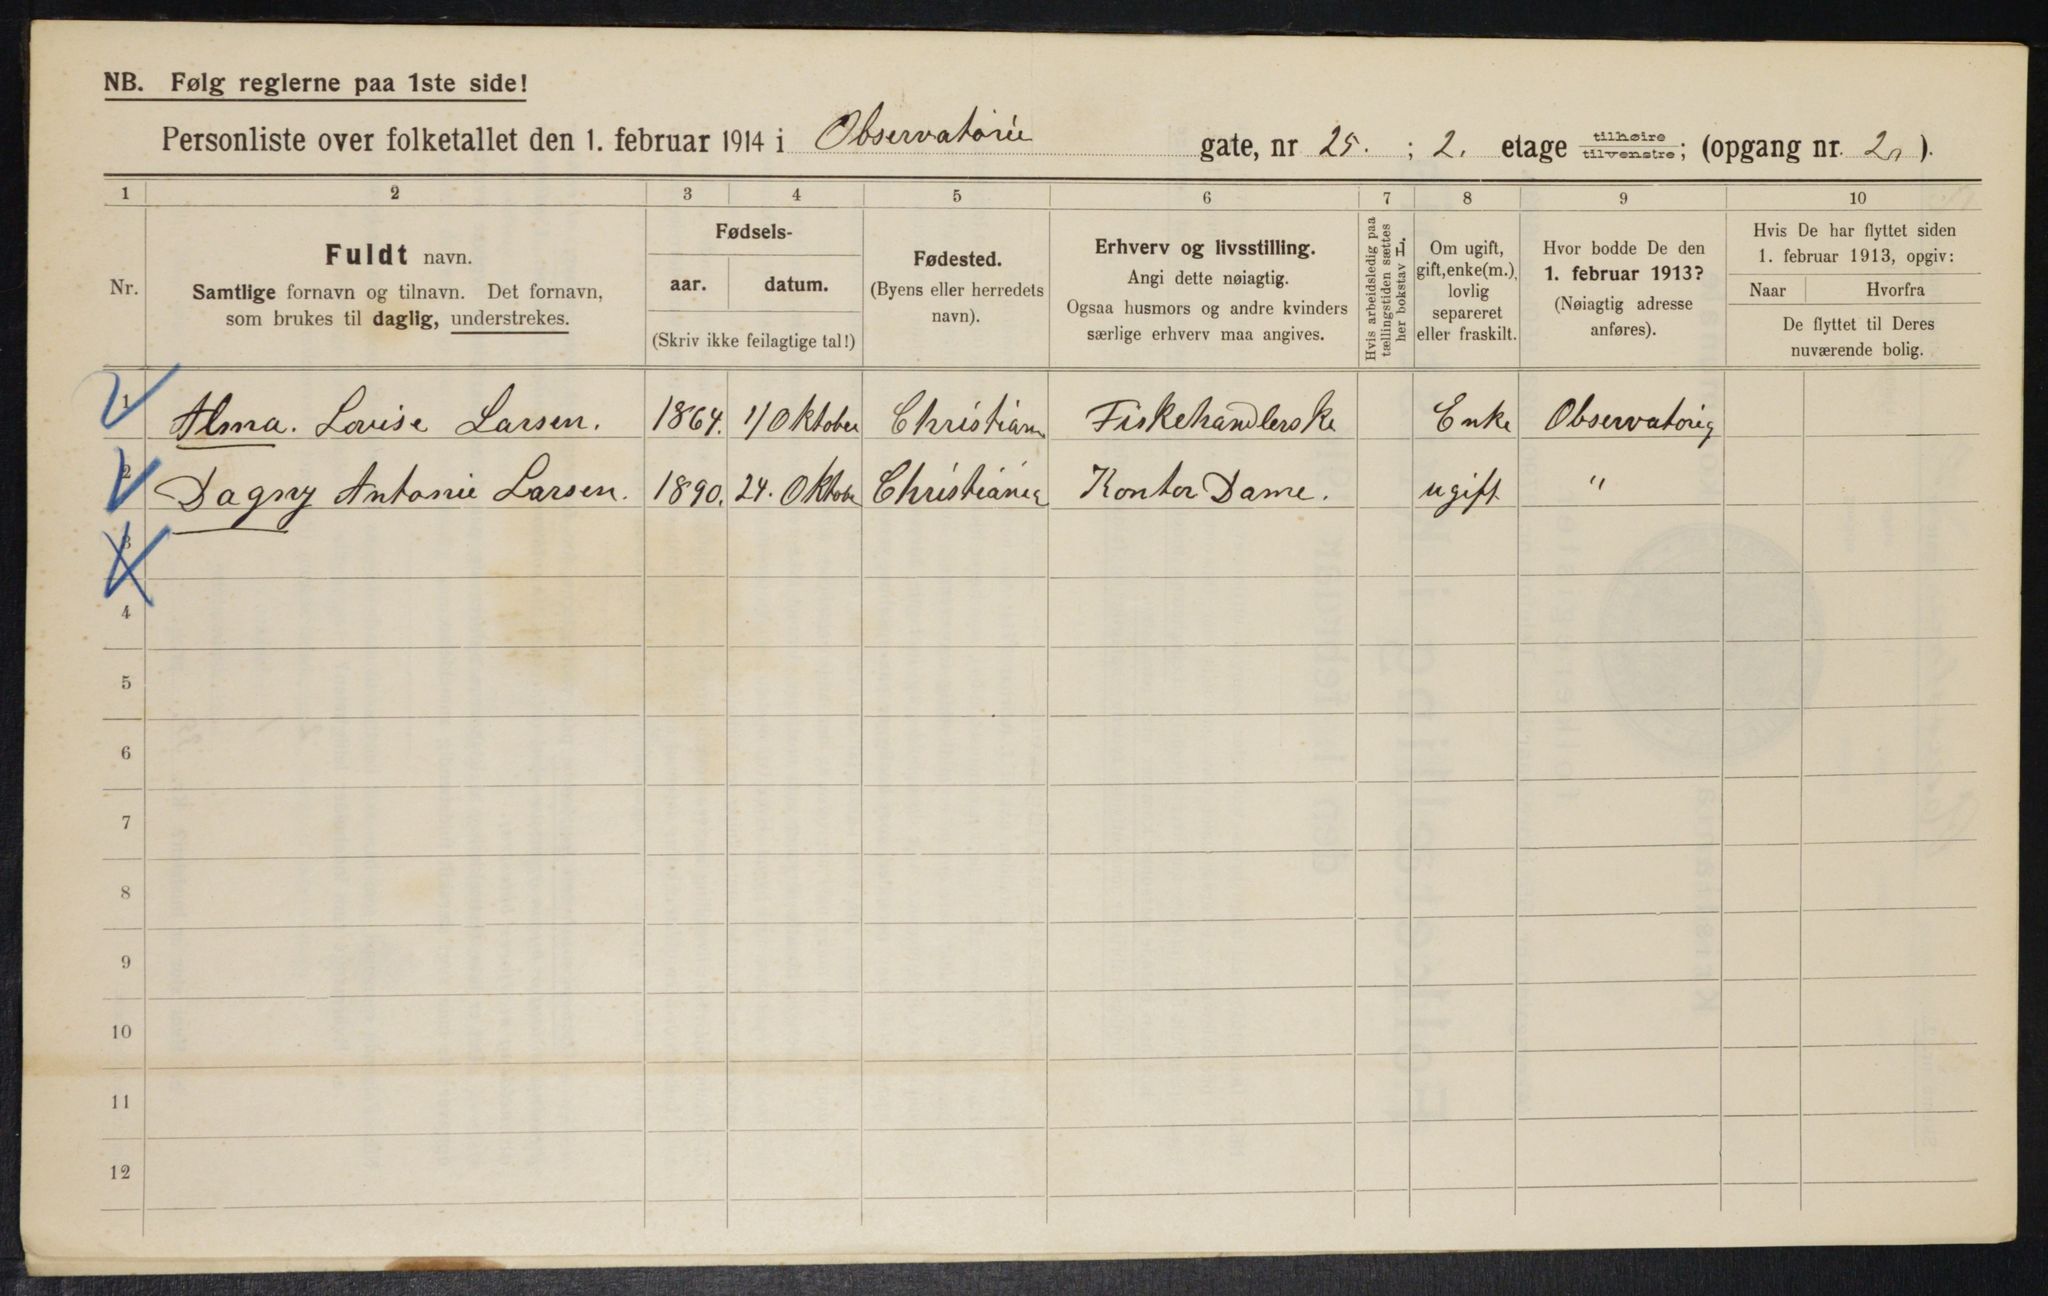 NB. Følg reglerne paa 1ste side!
Personliste over folketallet den 1. februar 1914 i Observatorie gate, nr 25. ; 2. etage tilhøire tilvenstre; (opgang nr. 2 ).
1 2 3 4 5 6 7 8 9 10
Nr.
Fuldt navn.
Samtlige fornavn og tilnavn. Det fornavn,
som brukes til daglig, understrekes.
Fødsels-
aar. datum.
(Skriv ikke feilagtige tal!)
Fødested.
(Byens eller herredets
navn).
Erhverv og livsstilling.
Angi dette nøiagtig.
Ogsaa husmors og andre kvinders
særlige erhverv maa angives.
Hvis arbeidsledig paa
tællingstiden sættes
her bokstav L.
Om ugift,
gift, enke(m.),
lovlig
separeret
eller fraskilt.
Hvor bodde De den
1. februar 1913?
(Nøiagtig adresse
anføres).
Hvis De har flyttet siden
1. februar 1913, opgiv:
Naar Hvorfra
De flyttet til Deres
nuværende bolig.
1 Alma. Lovise Larsen. 1864. 1/ Oktober Christiania Fiskehandlerske Enke Observatorig
2 Dagny Antonie Larsen. 1890. 24. Oktober Christiania Kontor Dame. ugift "
3
4
5
6
7
8
9
10
11
12